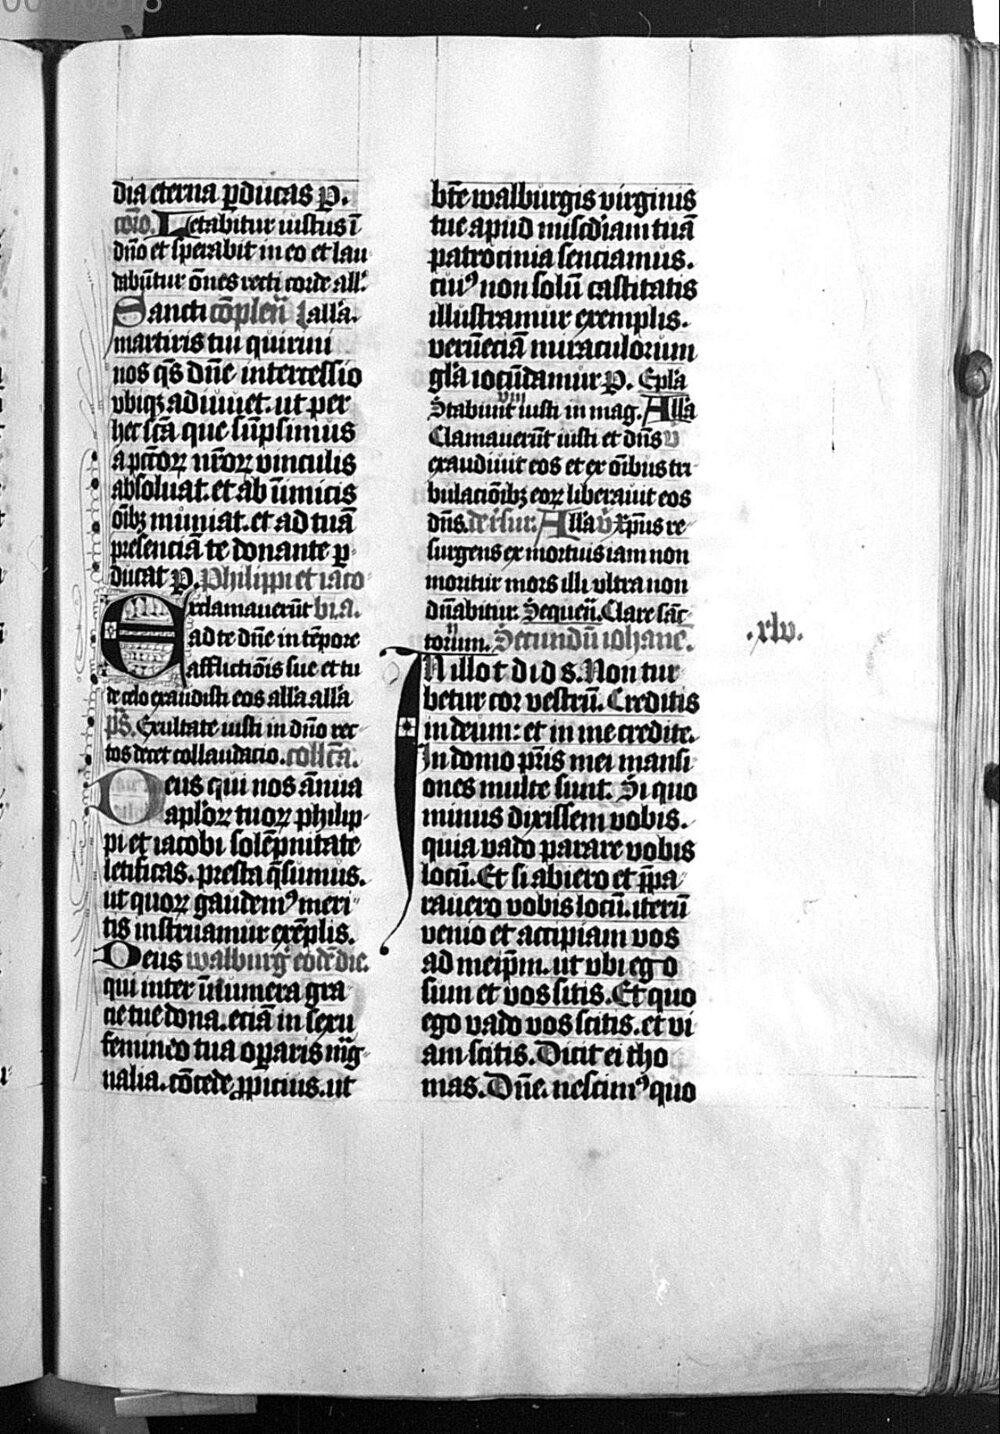 dia eterna ꝑducas ꝑ.
co͞io. Letabitur iustus ī
dn̄o et sperabit in eo et lau
dabūtur ōnes recti corde all'.
Sancti cōplen̄ ⁊ alla.
martiris tui quirini
nos qs̄ dn̄e intercessio
vbiqꝫ adiuuet. ut per
hec sc̄a que sūpsimus
a pcc̄oꝝ nr̄oꝝ vinculis
absoluat. et ab īimicis
oībꝫ muniat. et ad tuā
presenciā te donante ꝑ
ducat ꝑ. Philippi et iaco
Exclamauerūt bi. a.
ad te dn̄e in tēpore
afflictiōis sue et tu
de celo exaudisti eos alla alla
ps̄. Exultate iusti in dn̄o rec
tos decet collaudacio. collc̄a.
Deus qui nos ānua
aploꝝ tuoꝝ philip
pi et iacobi solēpnitate
letificas. presta qs̄umus.
ut quoꝝ gaudemꝰ meri
tis instruamur exēplis.
Deus walburg̍ eodē die.
qui inter īnumera gra
cie tue dona. eciā in sexu
femineo tua oꝑaris mag
nalia. cōcede ꝓpicius. ut
bt̄e walburgis virginis
tue apud misc̄diam tuā
patrocinia senciamus.
cuiꝰ non solū castitatis
illustramur exemplis.
verūeciā miraculorum
gl̄a iocūdamur ꝑ. Epl̄a
Stabunt iusti in mag. Alla
viii
Clamauerūt iusti et dn̄s v̄
exaudiuit eos et ex oībus tri
bulaciōibꝫ eoꝝ liberauit eos
dn̄s. de resur. Alla v̄ xp̄us re
surgens ex mortuis iam non
moritur mors illi vltra non
dn̄abitur. Sequen̄. Clare sāc
torum. Secundū iohane.
.xlv.
IN illo t di d s. Non tur
betur cor vestrū. Creditis
in deum: et in me credite.
In domo pr̄is mei mansi
ones multe sunt. Si quo
minus dixissem vobis.
quia vado parare vobis
locū. Et si abiero et p̄pa
rauero vobis locū. iterū
venio et accipiam vos
ad meip̄m. ut vbi ego
sum et vos sitis. Et quo
ego vado vos scitis. et vi
am scitis. Dicit ei tho
mas. Dn̄e. nescimꝰ quo